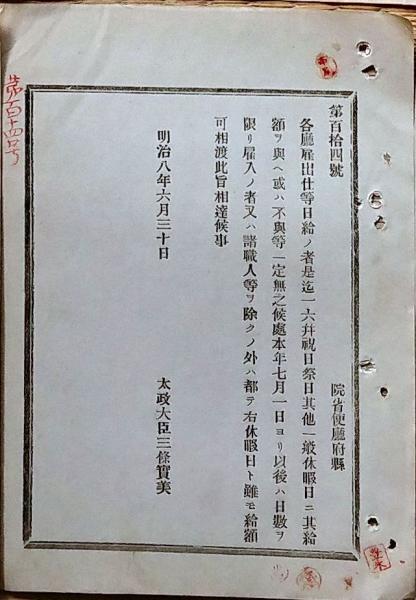 第百十四号
第百拾四號
院省使廳府縣
各廳雇出仕等日給ノ者是迄一六幷祝日祭日其他一般休暇日ニ其給
額ヲ與ヘ或ハ不與等一定無之候處本年七月一日ヨリ以後ハ日數ヲ
限リ雇入ノ者又ハ諸職人等ヲ除クノ外ハ都テ右休暇日ト雖モ給額
可相渡此旨相達候事
明治八年六月三十日
太政大臣三條實美